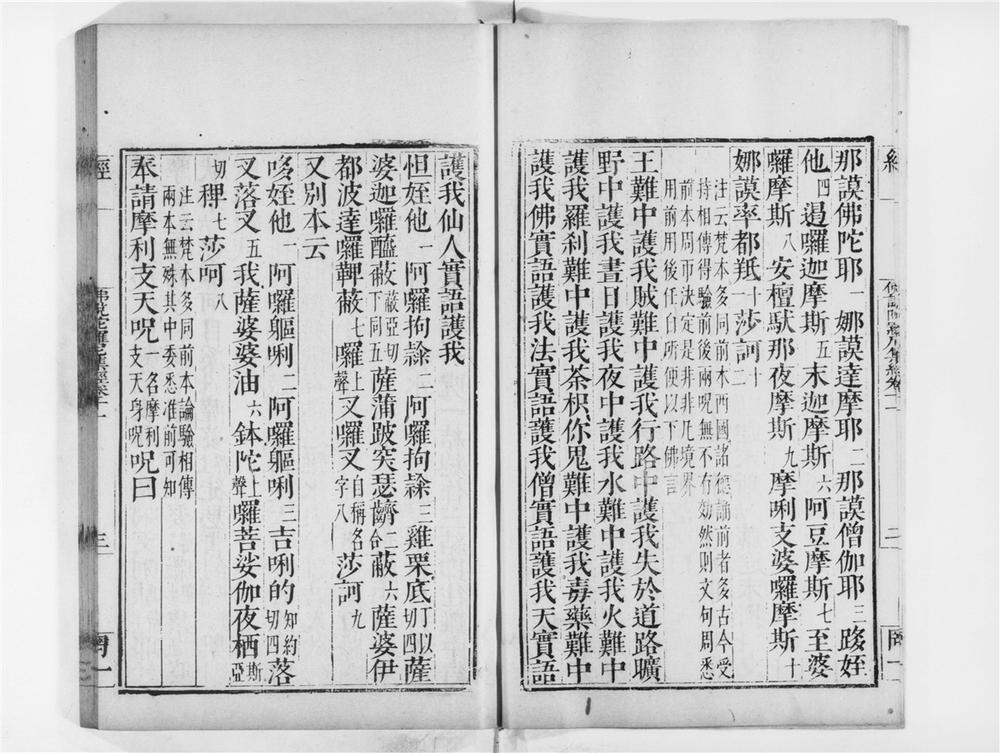 那謨佛陀耶一娜謨達摩耶二那謨僧伽耶三跢姪
他四遏囉迦摩斯五末迦摩斯六阿豆摩斯七至婆
囉摩斯八安檀馱那夜摩斯九摩唎支婆囉摩斯十
娜謨率都羝十一莎訶十二
注云梵本多同前本西國諸德誦前者多古今受
持相傳得驗前後兩呪無不有効然則文句周悉
前本周帀決定是非非凡境界
用前用後任自所便以下佛言
王難中護我賊難中護我行路中護我失於道路曠
野中護我晝日護我夜中護我水難中護我火難中
護我羅剎難中護我茶枳你鬼難中護我毒藥難中
護我佛實語護我法實語護我僧實語護我天實語
護我仙人實語護我
怛姪他一阿囉拘諭二阿囉拘諭三雞栗底丁以切四薩
婆迦囉醯蔽蔽亞切下同五薩蒲跛突瑟齊二合蔽六薩婆伊
都波達囉鞞蔽七囉聲叉囉叉自稱名字八莎訶九
又別本云
哆姪他一阿囉軀唎二阿囉軀唎三吉唎的知約切四落
叉落叉五我薩婆婆油六鉢陀上聲囉菩娑伽夜栖斯亞
切稗七莎呵八
注云梵本多同前本論驗相傳
兩本無殊其中委悉准前可知
奉請摩利支天呪一名摩利支天身呪呪曰
經
三
佛說陀羅尼集經卷十